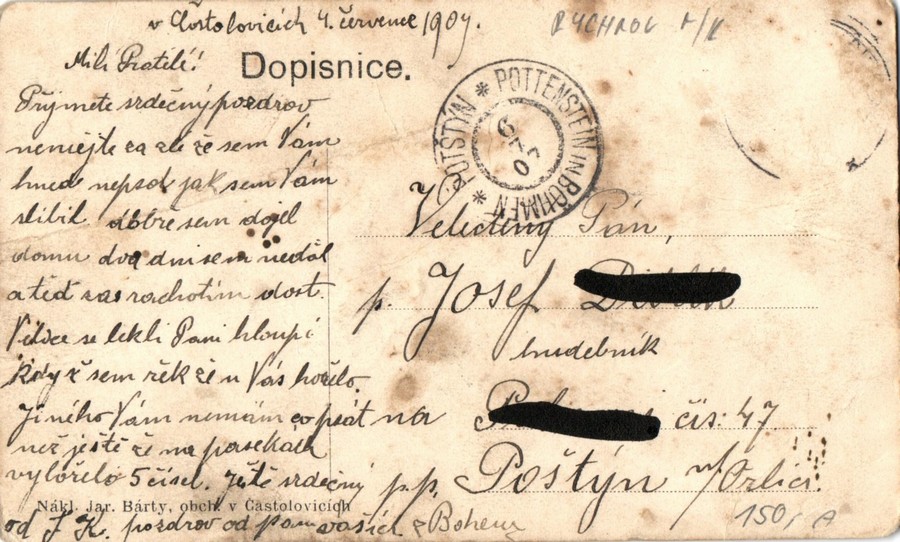 v Častolovicích 4. července 1907.
RYCHNOV n/K
Milí Pratelé!
Dopisnice.
POTŠTÝN * POTTENSTEIN IN BÖHMEN *
6 7 07
Přijmete srdečný pozdrav
nemějte za zlé že sem Vám
hned nepsal jak sem Vám
slibil dobře sem dojel
domu dva dni sem nedál
a teď zas rachotím dost.
Velice se lekli Pani hloupí
když sem řek že u Vás hořelo.
Jiného Vám nemám co psát
než ještě že na pasekach
vyhořelo 5 čísel. Ještě srdečný
od J. K. pozdrav od pana
z Bohem
Veledůstojný Pán,
p. Josef
hudebník
na čís: 47.
p.p. Poštýn n/Orlicí.
Nákl. Jar. Bárty, obch. v Častolovicích
150,- A